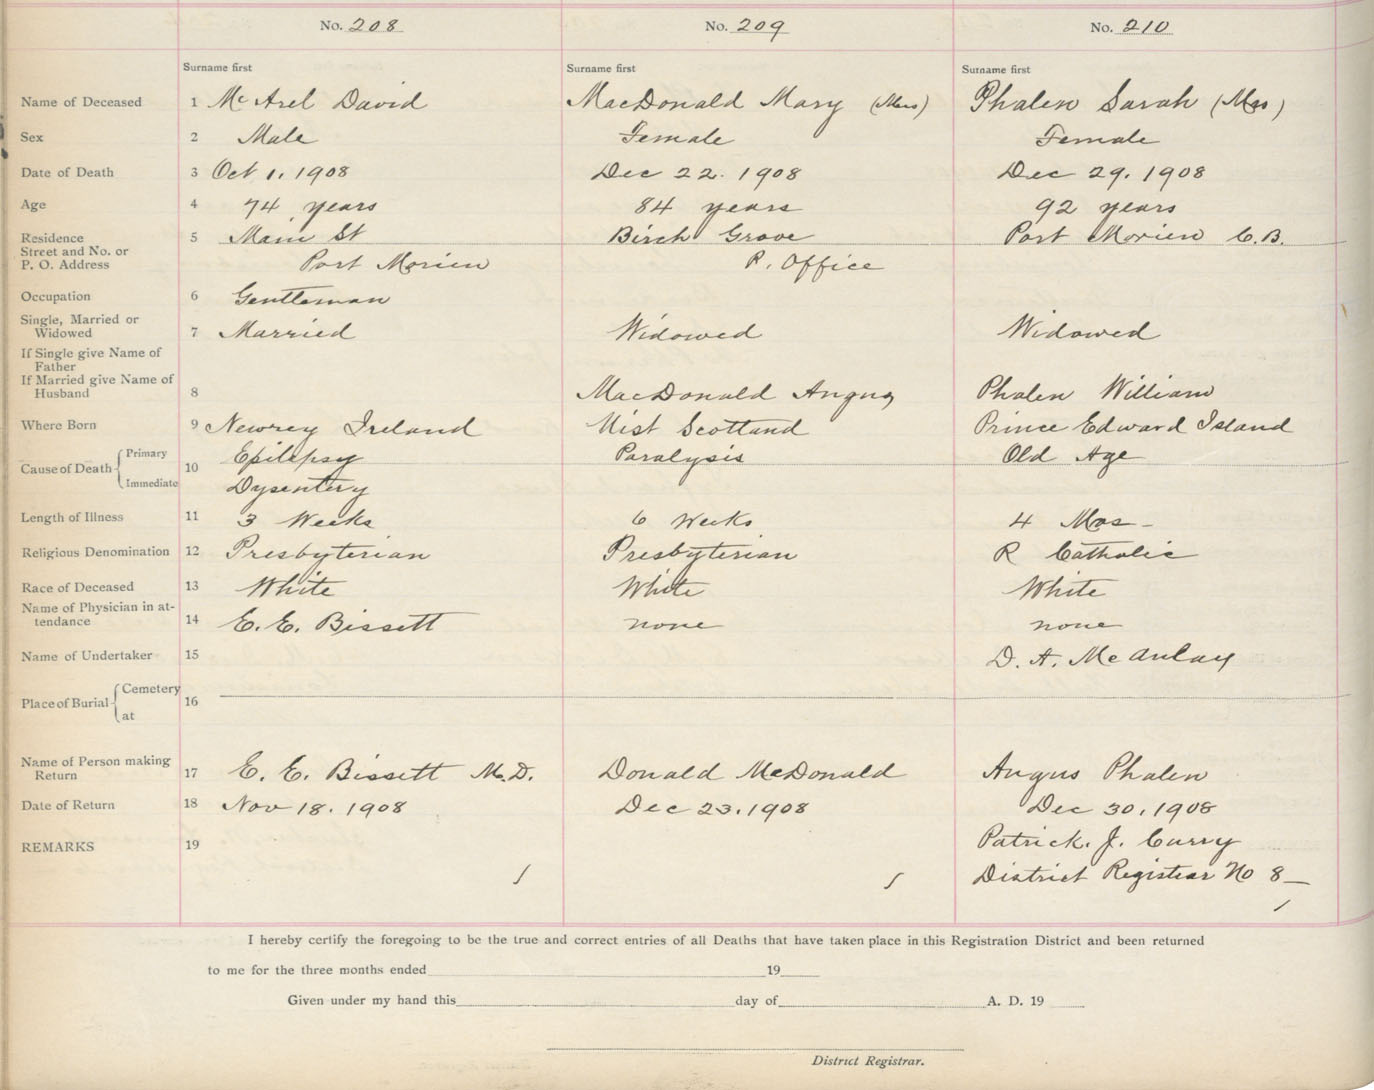 No. 208 No. 209 No. 210
Surname first Surname first Surname first
Name of Deceased 1 McArel David MacDonald Mary (Mrs) Phalen Sarah (Mrs)
Sex 2 Male Female Female
Date of Death 3 Oct 1, 1908 Dec 22. 1908 Dec 29, 1908
Age 4 74 years 84 years 92 years
Residence 5 Main St Birch Grove Port Morien C.B.
Street and No. or
P. O. Address Port Morien P. Office
Occupation 6 Gentleman
Single, Married or
Widowed 7 Married Widowed Widowed
If Single give Name of
Father
If Married give Name of
Husband 8 MacDonald Angus Phalen William
Where Born 9 Newrey Ireland Uist Scottand Prince Edward Island
Cause of Death Primary 10 Epilepsy Paralysis Old Age
Immediate Dysentery
Length of Illness 11 3 Weeks 6 Weeks 4 Mos -
Religious Denomination 12 Presbyterian Presbyterian R Catholic
Race of Deceased 13 White White White
Name of Physician in at-
tendance 14 E. E. Bissett none none
Name of Undertaker 15 D. A. McAulay
Place of Burial Cemetery 16
at
Name of Person making
Return 17 E. E. Bissett M.D. Donald McDonald Angus Phalen
Date of Return 18 Nov 18. 1908 Dec 23, 1908 Dec 30, 1908
REMARKS 19 Patrick. J. Curry
District Registrar No 8 –
I hereby certify the foregoing to be the true and correct entries of all Deaths that have taken place in this Registration District and been returned
to me for the three months ended 19
Given under my hand this day of A. D. 19
District Registrar.